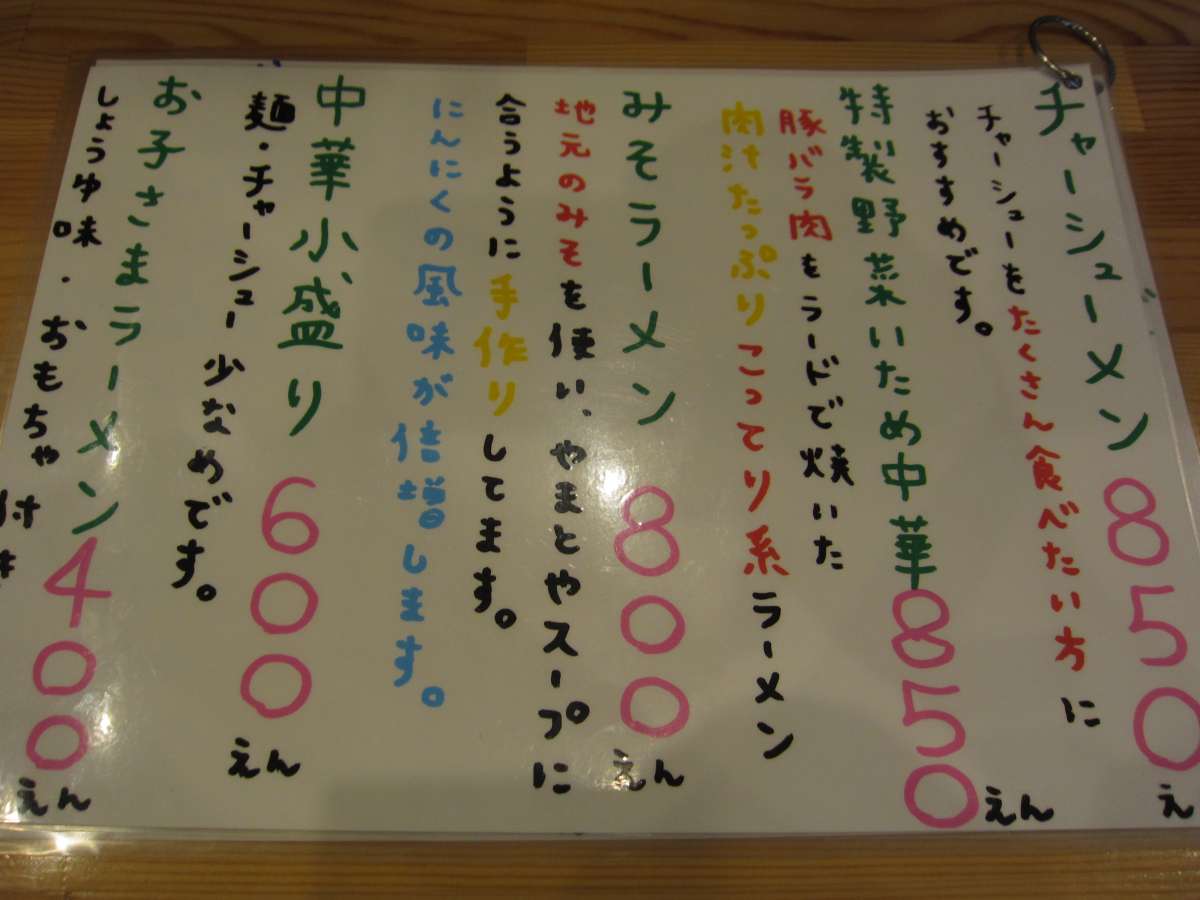 チャーシューメン 850え
チャーシューをたくさん食べたい方に
おすすめです。
特製野菜いため中華 850えん
豚バラ肉をラードで焼いた
肉汁たっぷりこってり系ラーメン
みそラーメン 800えん
地元のみそを使い、やまとやスープに
合うように手作りしてます。
にんにくの風味が倍増します。
中華小盛り 600えん
麺・チャーシュー少なめです。
お子さまラーメン 400えん
しょうゆ味・おもちゃ付き